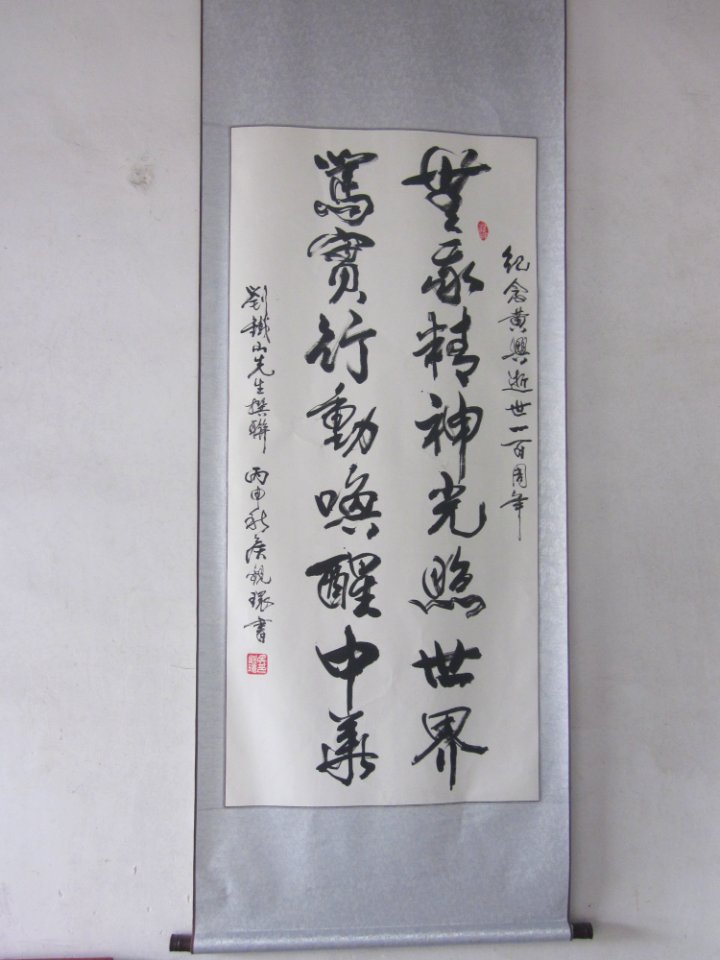 紀念黄興逝世一百周年
無我精神光照世界
篤實行動喚醒中華
劉鐵山先生撰聯 丙申秋 書